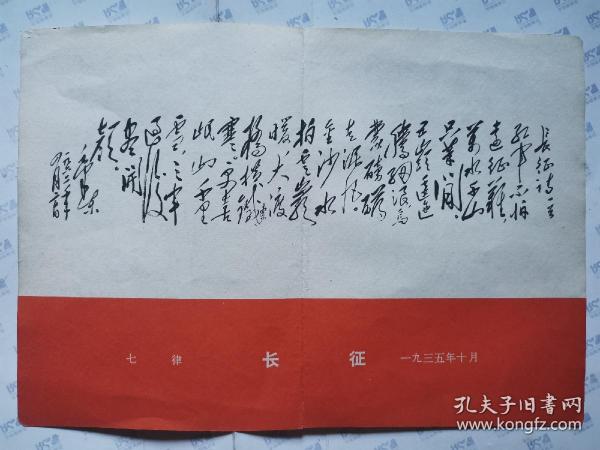 长征诗一首
红军不怕
远征難
萬水千山
只等闲
五嶺逶迤
腾细浪烏
蒙磅礴
走泥丸
金沙水
拍雲崖
暖大渡
橋横鐵索
寒更喜
岷山千里
雪三军
过後
尽開
颜
毛泽东
一九六二年
七律 长征 一九三五年十月
孔夫子旧书网